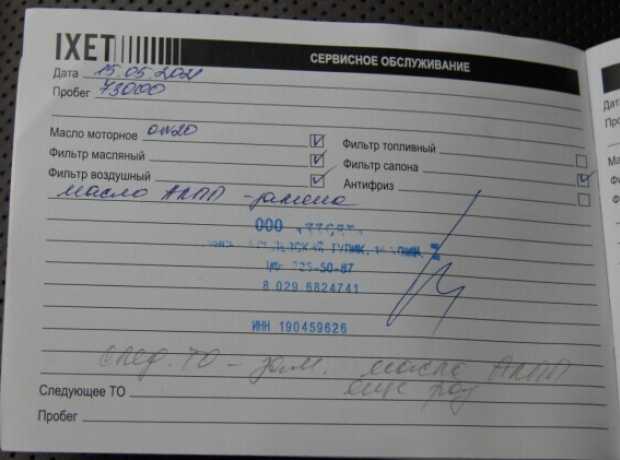 IXET
СЕРВИСНОЕ ОБСЛУЖИВАНИЕ
Дата 15.05.2021
Пробег 73000
Масло моторное 0W20
Фильтр топливный
Фильтр масляный
Фильтр салона
Фильтр воздушный
Антифриз
масло АКПП - замена
ООО
ТУПИК,
-50-87
8 029 6824741
ИНН 190459626
след. ТО - зам. масла АКПП
еще раз
Следующее ТО
Пробег